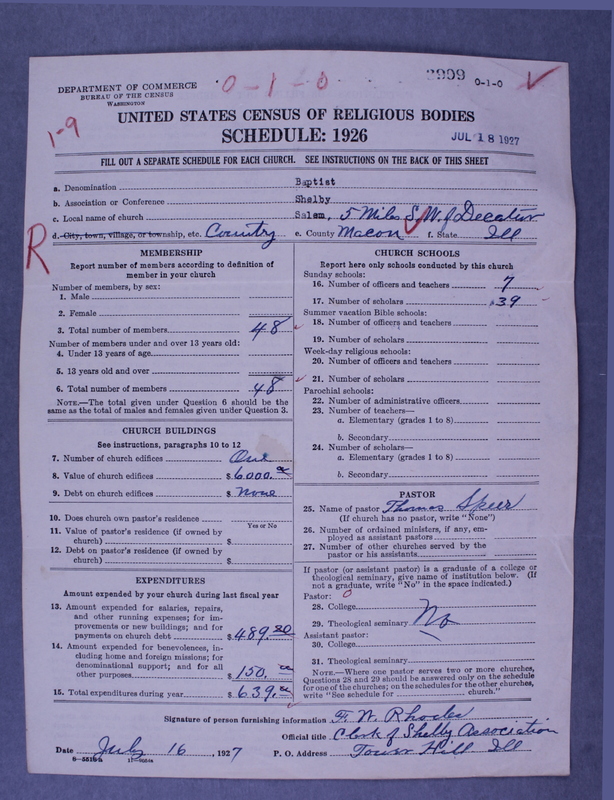 DEPARTMENT OF COMMERCE
BUREAU OF THE CENSUS
WASHINGTON
0-1-0
2909 0-1-0
1-9
UNITED STATES CENSUS OF RELIGIOUS BODIES
SCHEDULE: 1926
JUL 18 1927
FILL OUT A SEPARATE SCHEDULE FOR EACH CHURCH. SEE INSTRUCTIONS ON THE BACK OF THIS SHEET
a. Denomination Baptist
b. Association or Conference Shelby
c. Local name of church Salem, 5 Miles S. W. of Decatur
d. City, town, village, or township, etc. Country e. County Macon f. State Ill
R
MEMBERSHIP
Report number of members according to definition of
member in your church
Number of members, by sex:
1. Male
2. Female
3. Total number of members 48
Number of members under and over 13 years old:
4. Under 13 years of age
5. 13 years old and over
6. Total number of members 48
NOTE.—The total given under Question 6 should be the
same as the total of males and females given under Question 3.
CHURCH BUILDINGS
See instructions, paragraphs 10 to 12
7. Number of church edifices One
8. Value of church edifices $ 6000.00
9. Debt on church edifices $ None
10. Does church own pastor's residence
Yes or No
11. Value of pastor's residence (if owned by
church) $
12. Debt on pastor's residence (if owned by
church) $
EXPENDITURES
Amount expended by your church during last fiscal year
13. Amount expended for salaries, repairs,
and other running expenses; for im-
provements or new buildings; and for
payments on church debt $ 489.20
14. Amount expended for benevolences, in-
cluding home and foreign missions; for
denominational support; and for all
other purposes $ 150.00
15. Total expenditures during year $ 639.00
CHURCH SCHOOLS
Report here only schools conducted by this church
Sunday schools:
16. Number of officers and teachers 7
17. Number of scholars 39
Summer vacation Bible schools:
18. Number of officers and teachers
19. Number of scholars
Week-day religious schools:
20. Number of officers and teachers
21. Number of scholars
Parochial schools:
22. Number of administrative officers
23. Number of teachers—
a. Elementary (grades 1 to 8)
b. Secondary
24. Number of scholars—
a. Elementary (grades 1 to 8)
b. Secondary
PASTOR
25. Name of pastor Thomas Speer
(If church has no pastor, write "None")
26. Number of ordained ministers, if any, em-
ployed as assistant pastors
27. Number of other churches served by the
pastor or his assistants
If pastor (or assistant pastor) is a graduate of a college or
theological seminary, give name of institution below. (If
not a graduate, write "No" in the space indicated.)
Pastor:
28. College
29. Theological seminary No
Assistant pastor:
30. College
31. Theological seminary
NOTE.—Where one pastor serves two or more churches,
Questions 28 and 29 should be answered only on the schedule
for one of the churches; on the schedules for the other churches,
write "See schedule for church."
Signature of person furnishing information F. W. Rhodes
Official title Clerk of Shelby Association
Date July 16, 1927 P. O. Address Tower Hill Ill